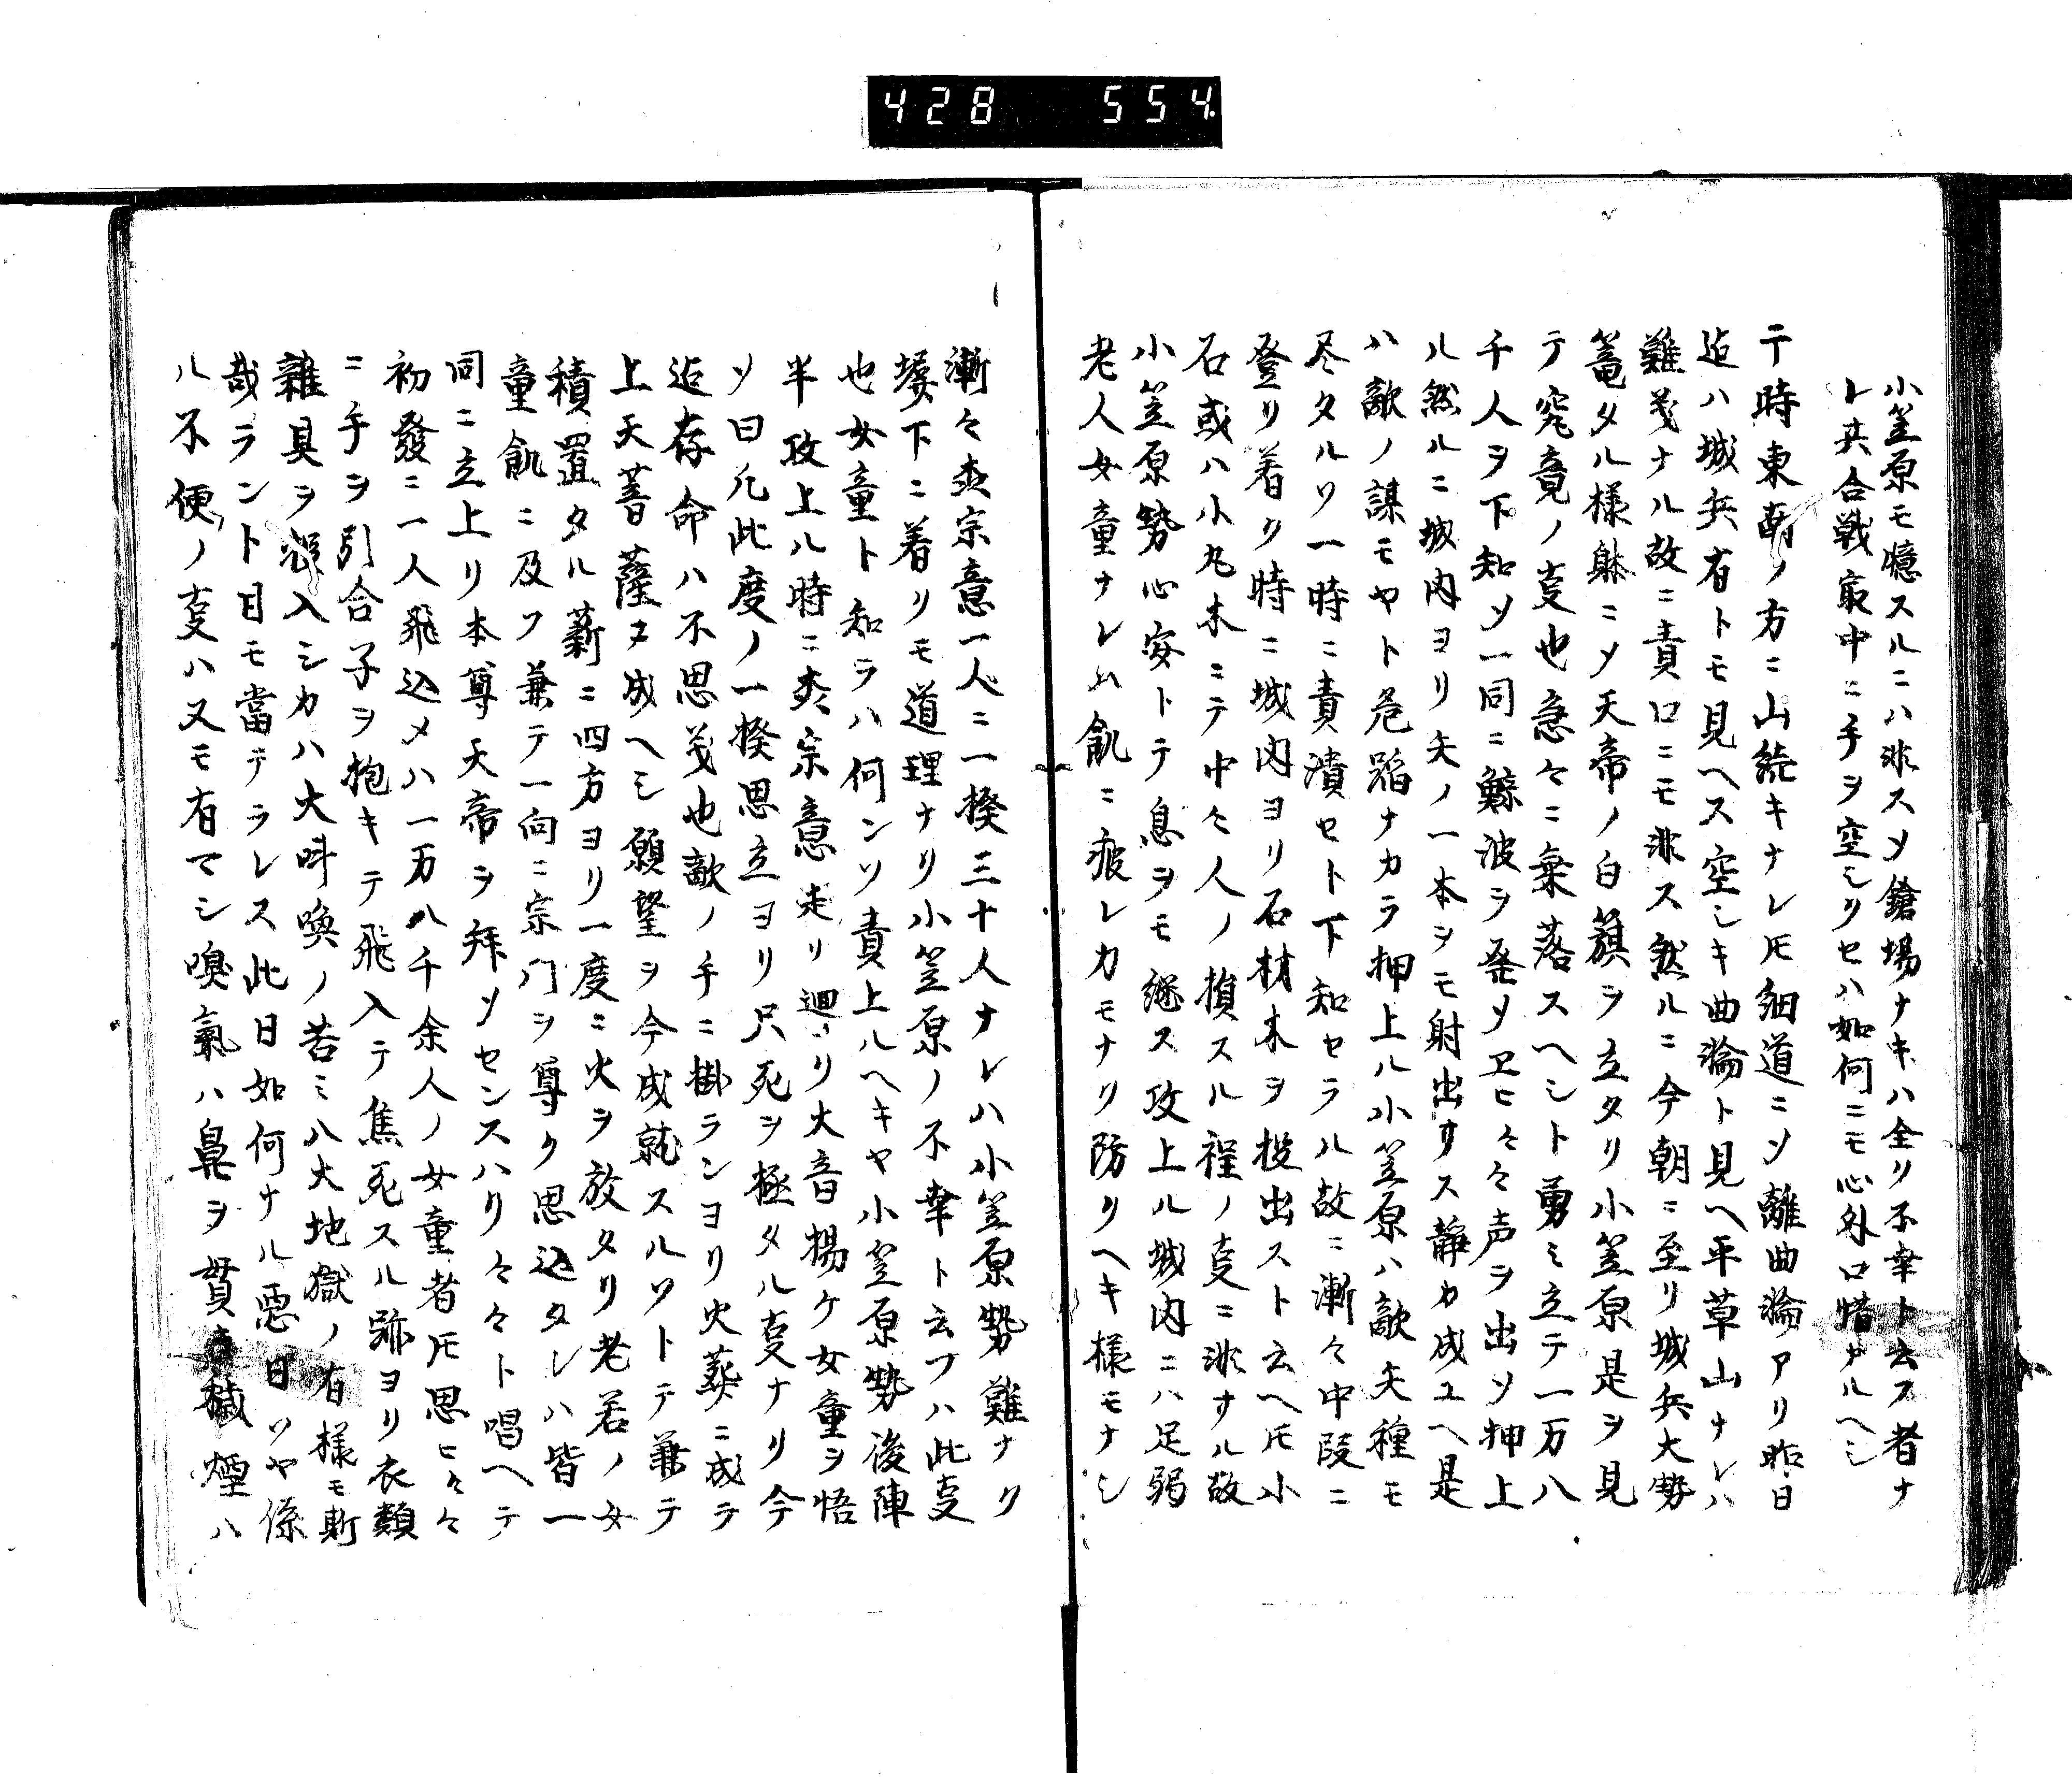 428 554
小笠原モ憶スルニハ非スソ鎗場ナキハ全リ不幸ト云フ者ナ
レ共合戦最中ニ手ヲ空シリセハ如何ニモ心外口惜カルヘシ
于時東南ノ方ニ山続キナレ𪜈細道ニソ離曲淪アリ昨日
迠ハ城兵有トモ見ヘス空シキ曲淪ト見ヘ平草山ナレハ
難義ナル故ニ責口ニモ非ス然ルニ今朝ニ至リ城兵大勢
篭タル様躰ニメ天帝ノ白籏ヲ立タリ小笠原是ヲ見
テ究竟ノ叓也急々ニ棄落スヘシト勇ミ立テ一万八
千人ヲ下知ソ一同ニ鯨波ヲ発ソヱヒ々々声ヲ出ソ押上
ル然ルニ城内ヨリ矢ノ一本ヲモ射出サス静カ成ユヘ是
ハ敵ノ謀モヤト危踏ナカラ押上ル小笠原ハ敵矢種モ
尽タルソ一時ニ責潰セト下知セラル故ニ漸々中段ニ
登リ着ク時ニ城内ヨリ石材木ヲ投出スト云ヘ𪜈小
石或ハ小丸木ニテ中々人ノ損スル程ノ叓ニ非サル故
小笠原勢心安トテ息ヲモ継ス攻上ル城内ニハ足弱
老人女童ナレハ飢ニ疲レカモナリ防クヘキ様モナシ
漸々杢宗意一人ニ一揆三十人ナレハ小笠原勢難ナク
塀下ニ着リモ道理ナリ小笠原ノ不幸ト云フハ此叓
也女童ト知ラハ何ンソ責上ルヘキヤ小笠原勢後陣
半攻上ル時ニ杢宗意走リ廻リ大音揚ケ女童ヲ悟
ソ曰凡此度ノ一揆思立ヨリ只死ヲ極タル叓ナリ今
迠存命ハ不思義也敵ノ手ニ掛ランヨリ火葬ニ成テ
上天菩薩ヌ成ヘシ願望ヲ今成就スルソトテ兼テ
積置タル薪ニ四方ヨリ一度ニ火ヲ放タリ老若ノ女
童飢ニ及フ兼テ一向ニ宗門ヲ尊ク思込タレハ皆一
同ニ立上リ本尊天帝ヲ拜ソセンスハリ々々ト唱ヘテ
初發ニ一人飛込メハ一万八千余人ノ女童者𪜈思ヒ々々
ニ手ヲ引合子ヲ抱キテ飛入テ焦死スル跡ヨリ衣類
雜具ヲ投入シカハ大呌喚ノ苦ミ八大地獄ノ有様モ斯
哉ラント目モ當テラレス此日如何ナル悪日ソヤ係
ル不便ノ叓ハ又モ有マシ嗅氣ハ鼻ヲ貫キ穢煙ハ